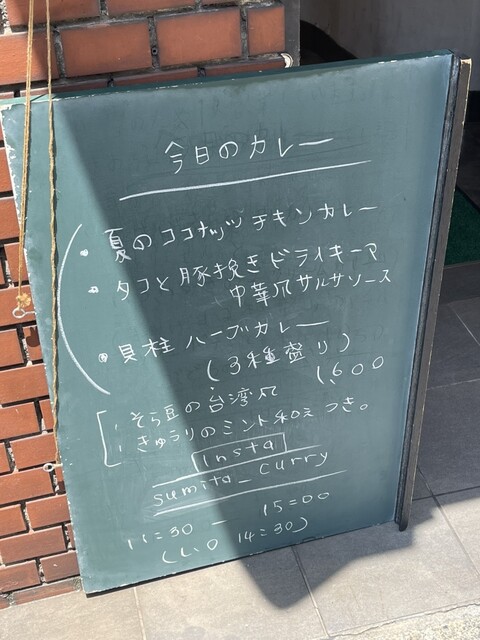 今日のカレー
・夏のココナッツチキンカレー
・タコと豚挽きドライキーマ
中華風サルサソース
・貝柱ハーブカレー
(3種盛り)
1,600
そら豆の台湾風
きゅうりのミント和え つき。
insta
sumita_curry
11:30 - 15:00
(L.O 14:30)